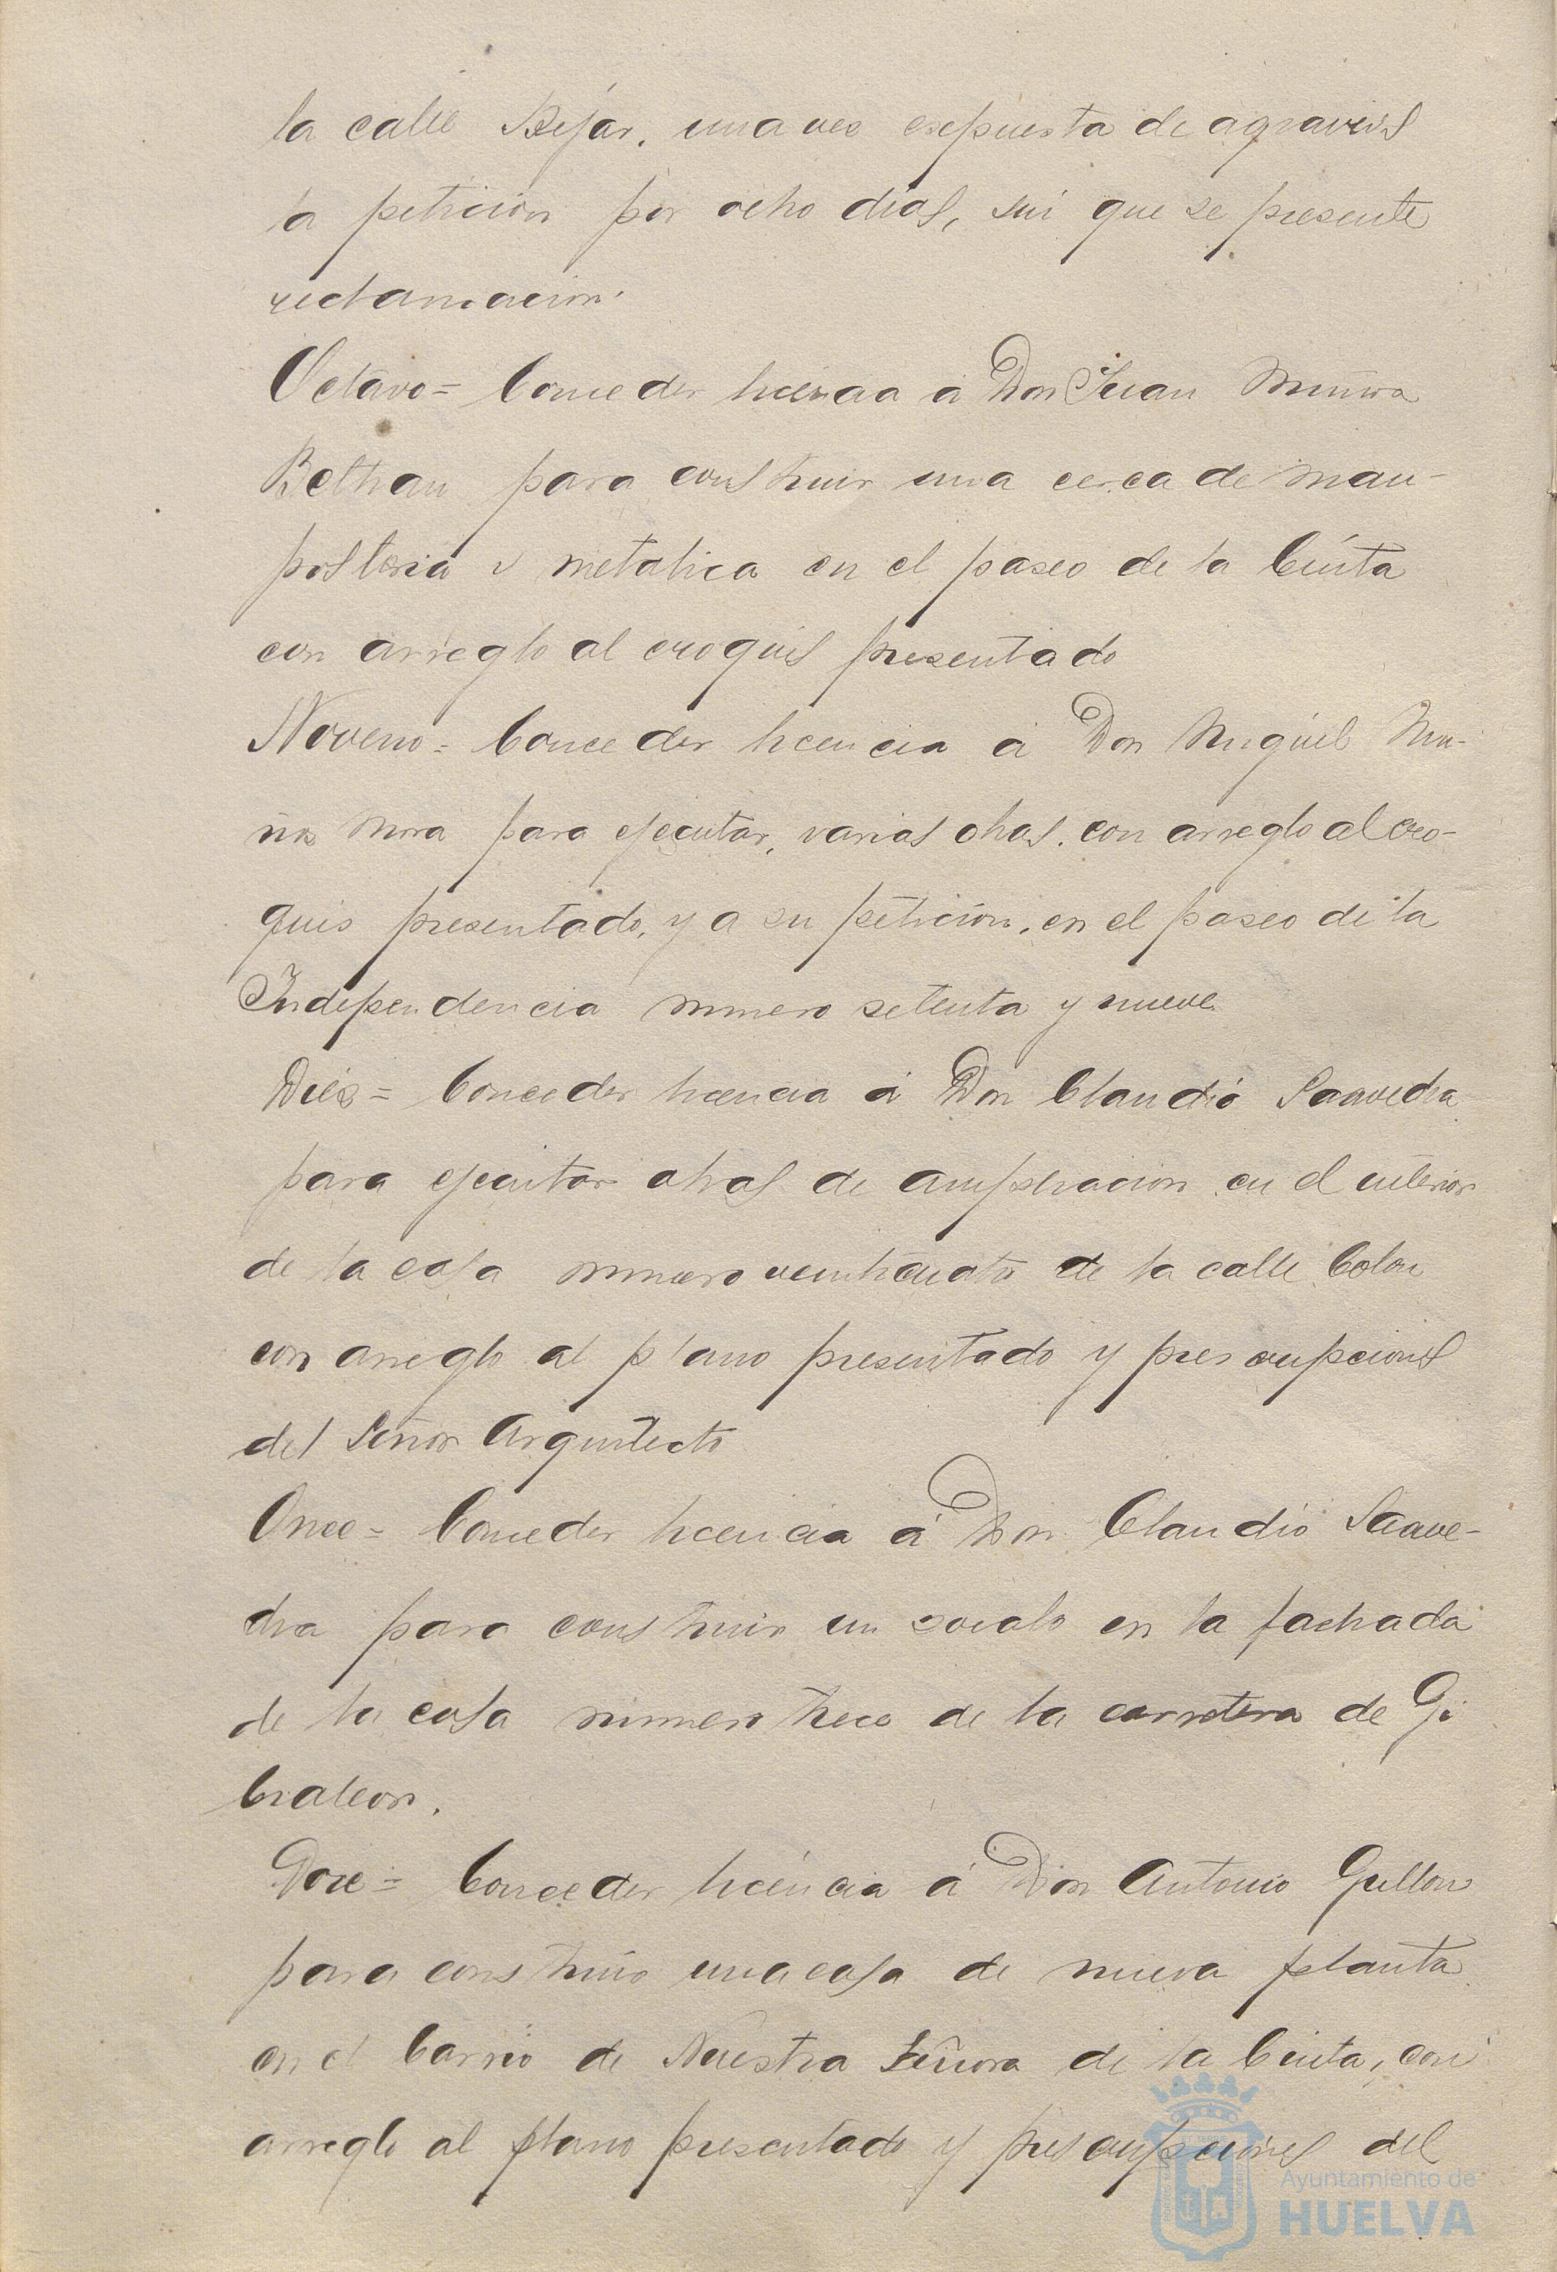 la calle Béjar, una vez expuesta de agravios
la petición por ocho días, sin que se presente
reclamacion.
Octavo= Conceder licencia á Don Juan
Beltran para construir una cerca de mam-
postería y metalica en el paseo de la Cinta
con arreglo al croquis presentado
Noveno= Conceder licencia á Don Miguel Mu-
ñiz Mora para ejecutar, varias obras, con arreglo al cro-
quis presentado, y a su petición, en el paseo de la
Independencia numero setenta y nueve
Diéz= Conceder licencia á Don Claudio Saavedra
para ejecutar obras de ampliacion en el interior
de la casa numero veinticuatro de la calle Colon
con arreglo al plano presentado y prescripciones
del Señor Arquitecto
Once= Conceder licencia á Don Claudio Saave-
dra para construir un zocalo en la fachada
de la casa numero trece de la carretera de Gi
braleon.
Doce= Conceder licencia á Don Antonio Gullon
para construir una casa de nueva planta
en el barrio de Nuestra Señora de la Cinta, con
arreglo al plano presentado y prescripciones del
Ayuntamiento de
HUELVA